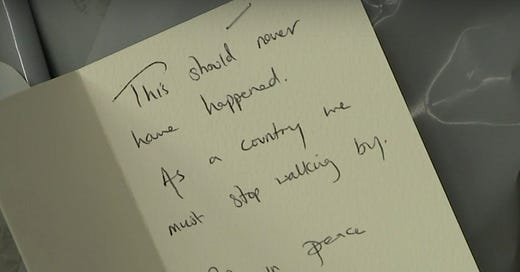 This should never
have happened.
As a country we
must stop walking by.
in peace